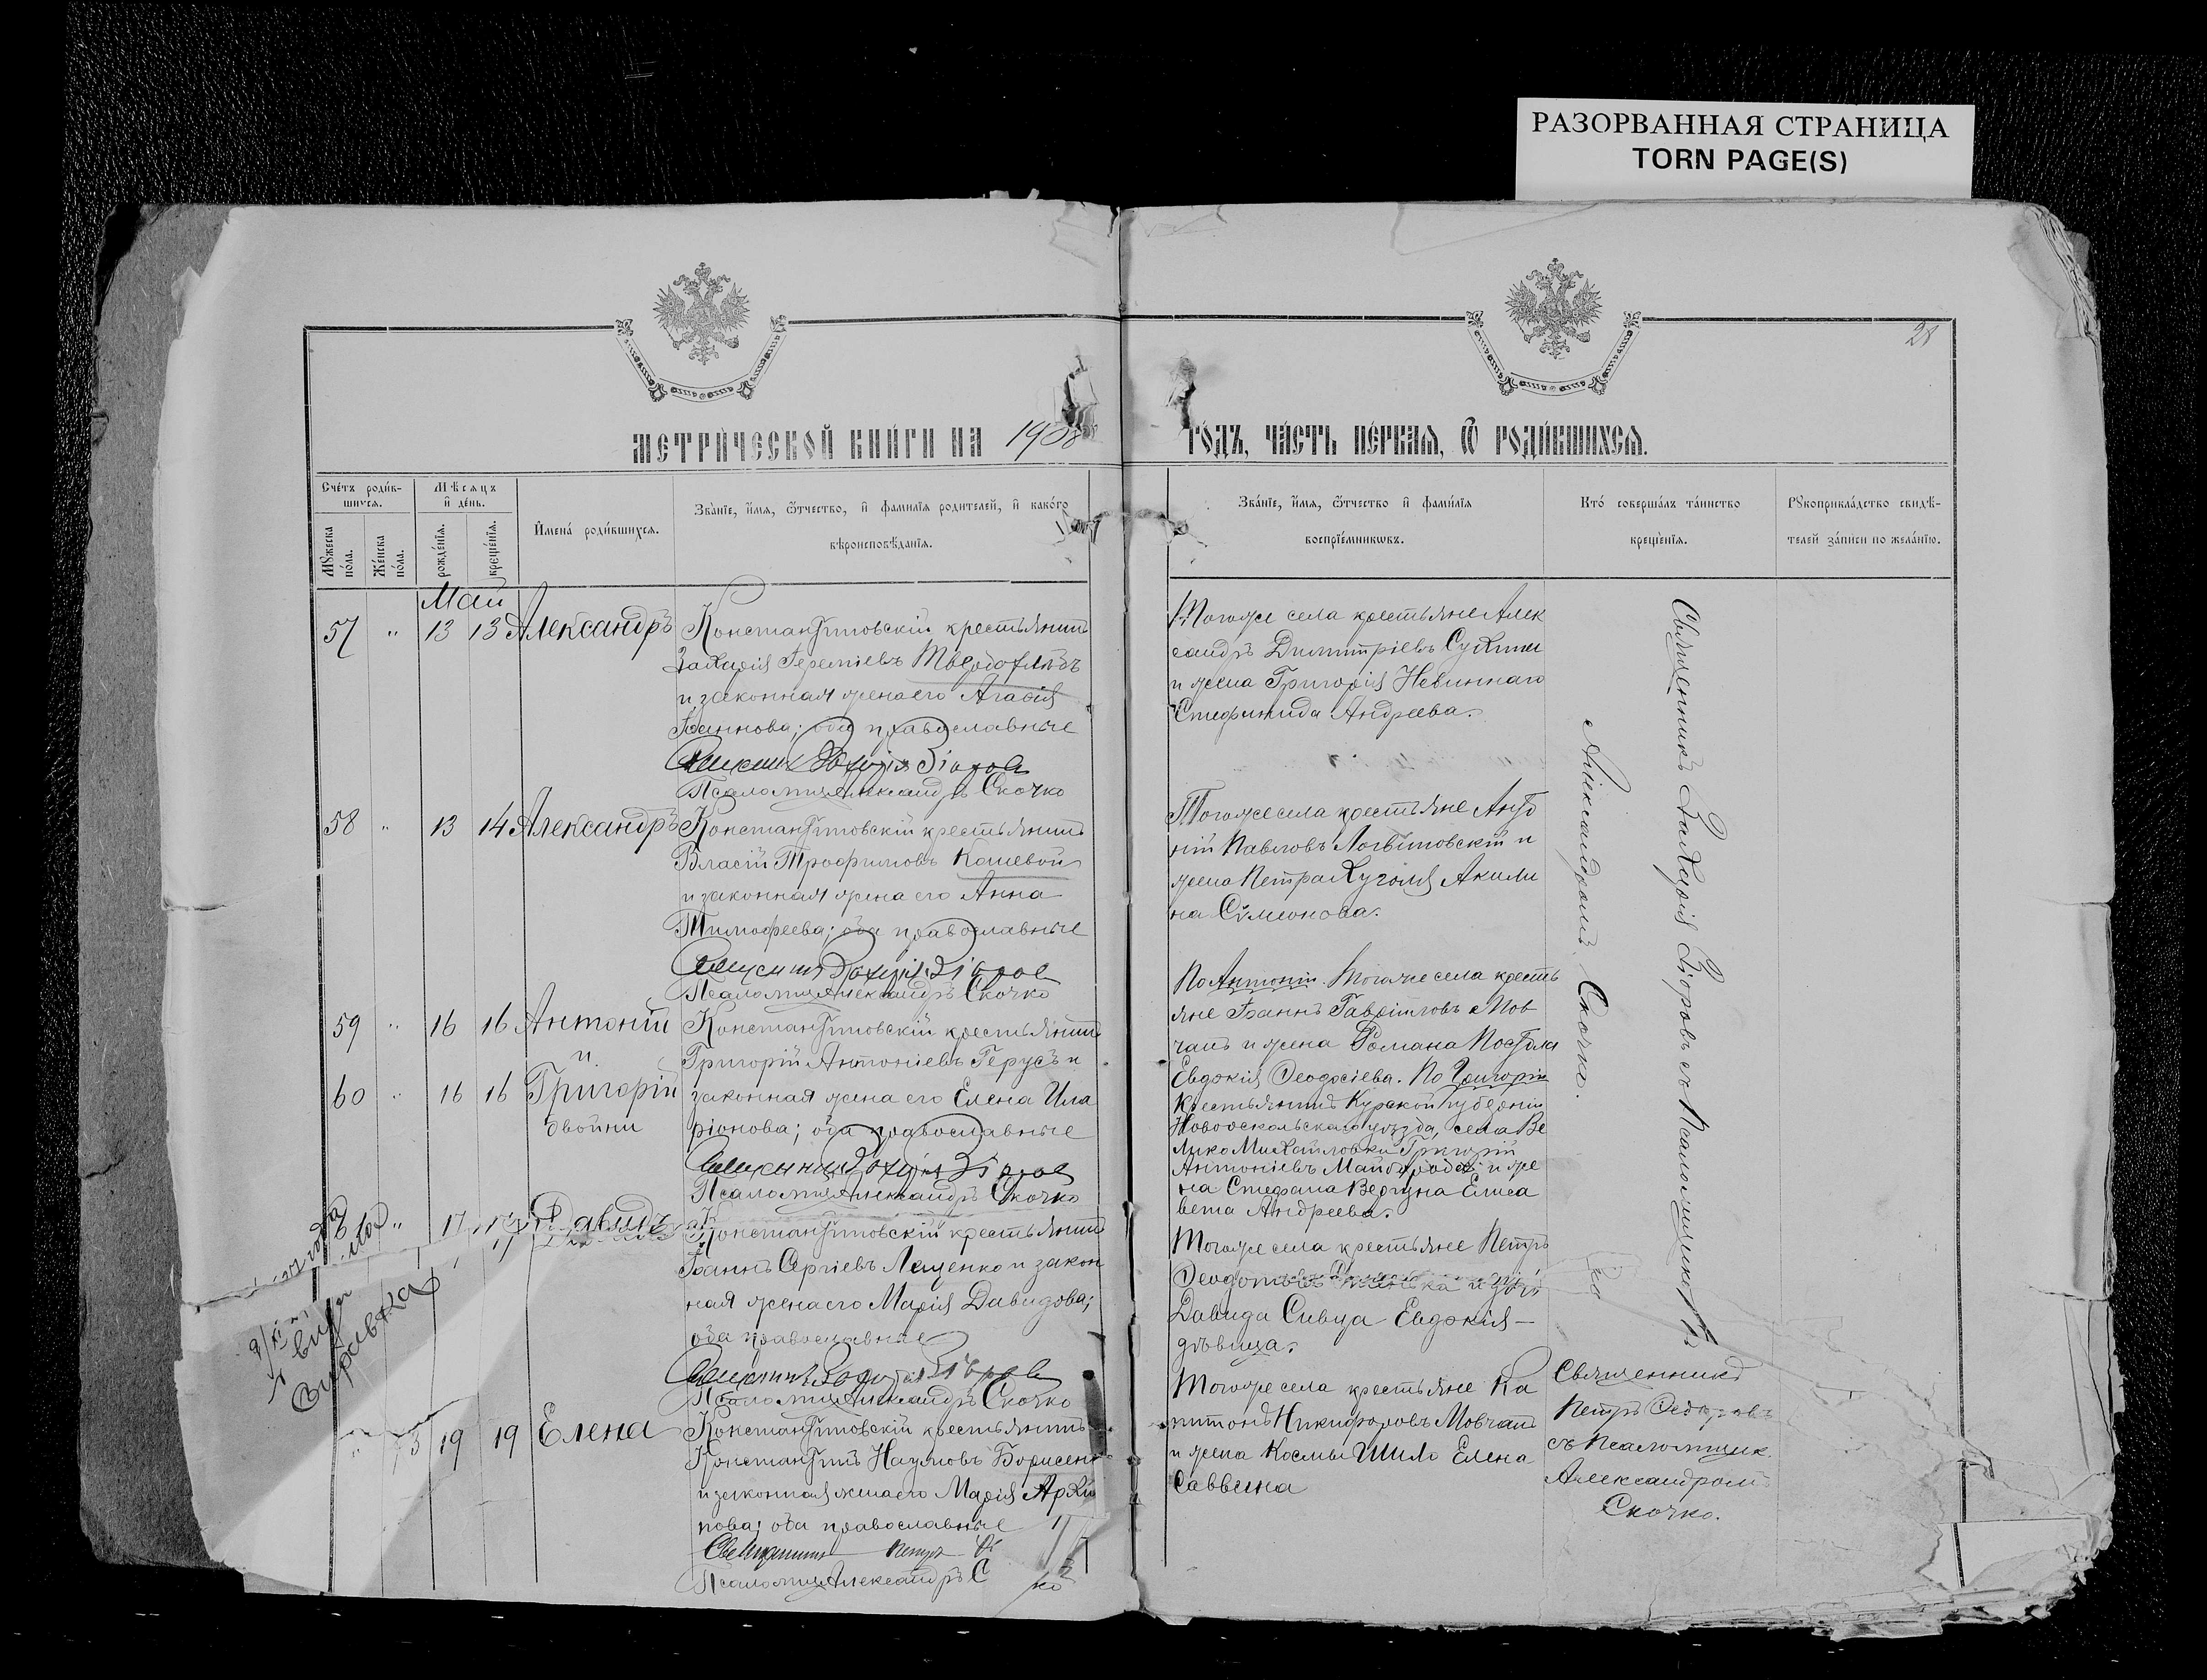 РАЗОРВАННАЯ СТРАНИЦА
TORN PAGE(S)
28
МЕТРИЧЕСКОЙ КНИГИ НА 1908
ГОДЪ, ЧАСТЬ ПЕРВАЯ, Ѿ РОДИВШИХСЯ.
Счетъ родив-
шихся.
Мꙋжеска пола.
Женска пола.
Мѣсяцъ
и день.
рожденїя.
крещенїя.
Имена родившихся.
Званїе, имя, ѿтчество, и фамилїя родителей, и какого
вѣроисповѣданїя.
Званїе, имя, ѿтчество и фамилїя
воспрїемникωвъ.
Кто совершалъ таинство
крещенїя.
Рꙋкоприкладство свидѣ-
телей записи по желанїю.
Май
57 " 13 13 Александръ
Константиновскій крестьянинъ
Захарія Іереміевъ Твердохлѣбъ
и законная жена его Агаѳія
Іоаннова; оба православные
Псаломщ Александръ Скочко
Тогоже села крестьяне Алек
сандръ Димитріевъ Сухини
и жена Григорія Невиннаго
Стефанида Андреева.
58 " 13 14 Александръ
Константиновскій крестьянинъ
Власій Трофимовъ Кошевой
и законная жена его Анна
Тимофеева; оба православные
Псаломщ Александръ Скочко
Тогоже села крестьяне Анто
ній Павловъ Логвиновскій и
жена Петра Хуголя Акили
на Сѵмеонова.
59 " 16 16 Антоній
и
60 " 16 16 Григорій
двойни
Константиновскій крестьянинъ
Григорій Антоніевъ Герусъ и
законная жена его Елена Ила
ріонова; оба православные
Псаломщ Александръ Скочко
По Антоніи тогоже села кресть
яне Іоаннъ Гавріиловъ Мов
чанъ и жена Романа Постола
Евдокія Ѳеодосіева. По Григоріи
крестьянинъ Курской губерніи
Новооскольскаго уѣзда, села Ве
лико Михайловки Григорій
Антоніевъ Майборода и же
на Стефана Вергуна Елиса
вета Андреева.
" 17 17 Давидъ
Константиновскій крестьянинъ
Іоаннъ Сергіевъ Лященко и закон
ная жена его Марія Давидова;
оба православные
Псаломщ Александръ Скочко
Тогоже села крестьяне Петръ
Давида Сивца Евдокія —
дѣвица.
справка
19 19 Елена
Константиновскій крестьянинъ
Константинъ Наумовъ Борисенк
и законная жена его Марія Архи
пова; оба православные
Священникъ Петръ
Псаломщ Александръ С
Тогоже села крестьяне Ка
питонъ Никифоровъ Мовчанъ
и жена Космы Шило Елена
Саввина
Священникъ Захарія Ѳіоровъ съ Псаломщикомъ
Александромъ Скочко.
Священникъ
Петръ Ѳедоровъ
съ Псаломщик.
Александромъ
Скочко.